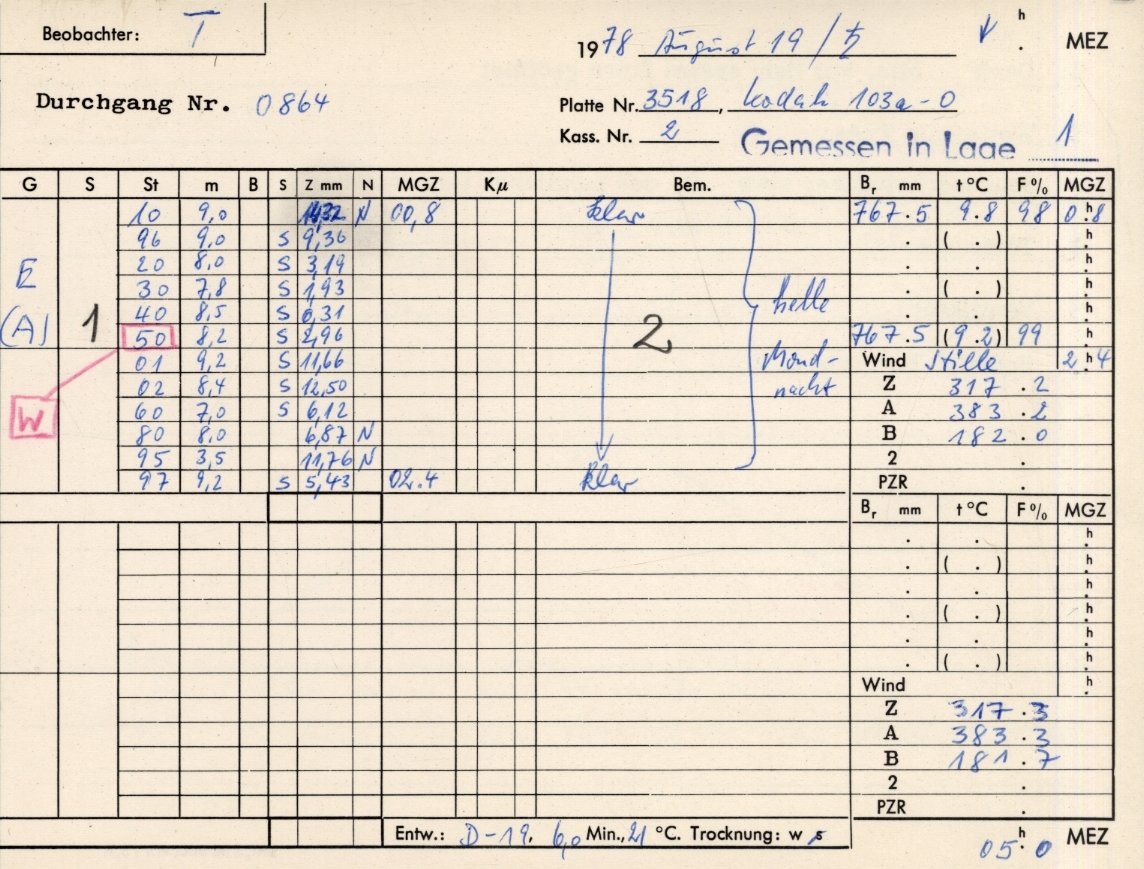 Beobachter: T
1978 August 19 / ♄ h . MEZ
Durchgang Nr. 0864
Platte Nr. 3518, Kodak 103a-O
Kass. Nr. 2 Gemessen in Lage 1
G S St m B S Z mm N MGZ Kμ Bem. Br mm t °C F % MGZ
10 9,0 N 00,8 klar 767.5 9.8 98 0h.8
96 9,0 S 9,36 . ( . ) h.
E 20 8,0 S 3,19 . . h.
30 7,8 S 1,93 . ( . ) h.
40 8,5 S 6,31 helle . . h.
(A) 1 50 8,2 S 2,96 2 767.5 (9.2) 99 h.
01 9,2 S 11,66 Mond- Wind Stille 2h.4
02 8,4 S 12,50 nacht Z 317.2
W 60 7,0 S 6,12 A 383.2
80 8,0 6,87 N B 182.0
95 3,5 11,76 N 2 .
97 9,2 S 5,43 02.4 klar PZR .
Br mm t °C F % MGZ
. . h.
. ( . ) h.
. . h.
. ( . ) h.
. . h.
. ( . ) h.
Wind h.
Z 317.3
A 383.3
B 181.7
2 .
PZR .
Entw.: D-19, 6,0 Min., 21 °C. Trocknung: w s
05h.0 MEZ